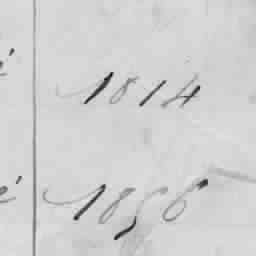 é 1814
é 1856